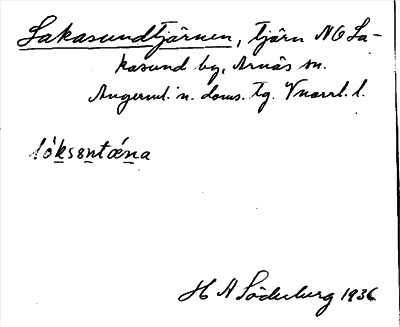 Lakasundtjärnen, tjärn NO La-
kasund by, Arnäs sn.
Ångerml. n. doms. tg. Vnorrl. l.
lòksɘntǽna
H A Söderberg 1936